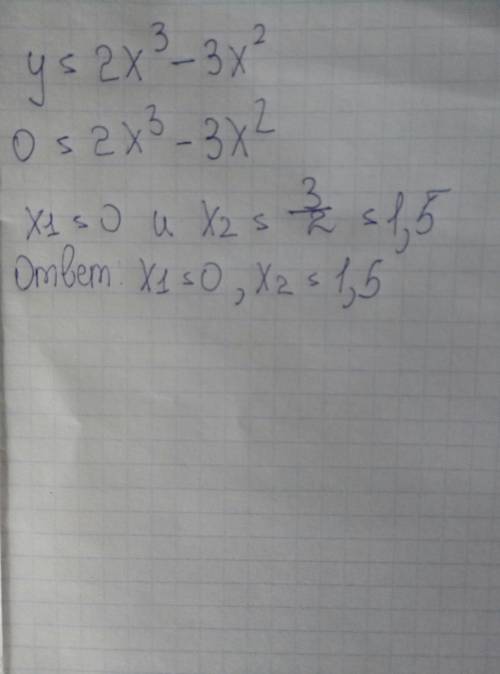 y = 2x³ - 3x²
0 = 2x³ - 3x²
x1 = 0 и x2 = 3/2 = 1,5
Ответ: x1 = 0, x2 = 1,5